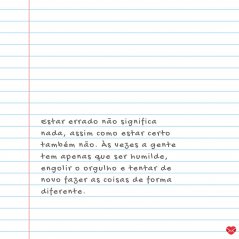 Estar errado não significa
nada, assim como estar certo
também não. Às vezes a gente
tem apenas que ser humilde,
engolir o orgulho e tentar de
novo fazer as coisas de forma
diferente.